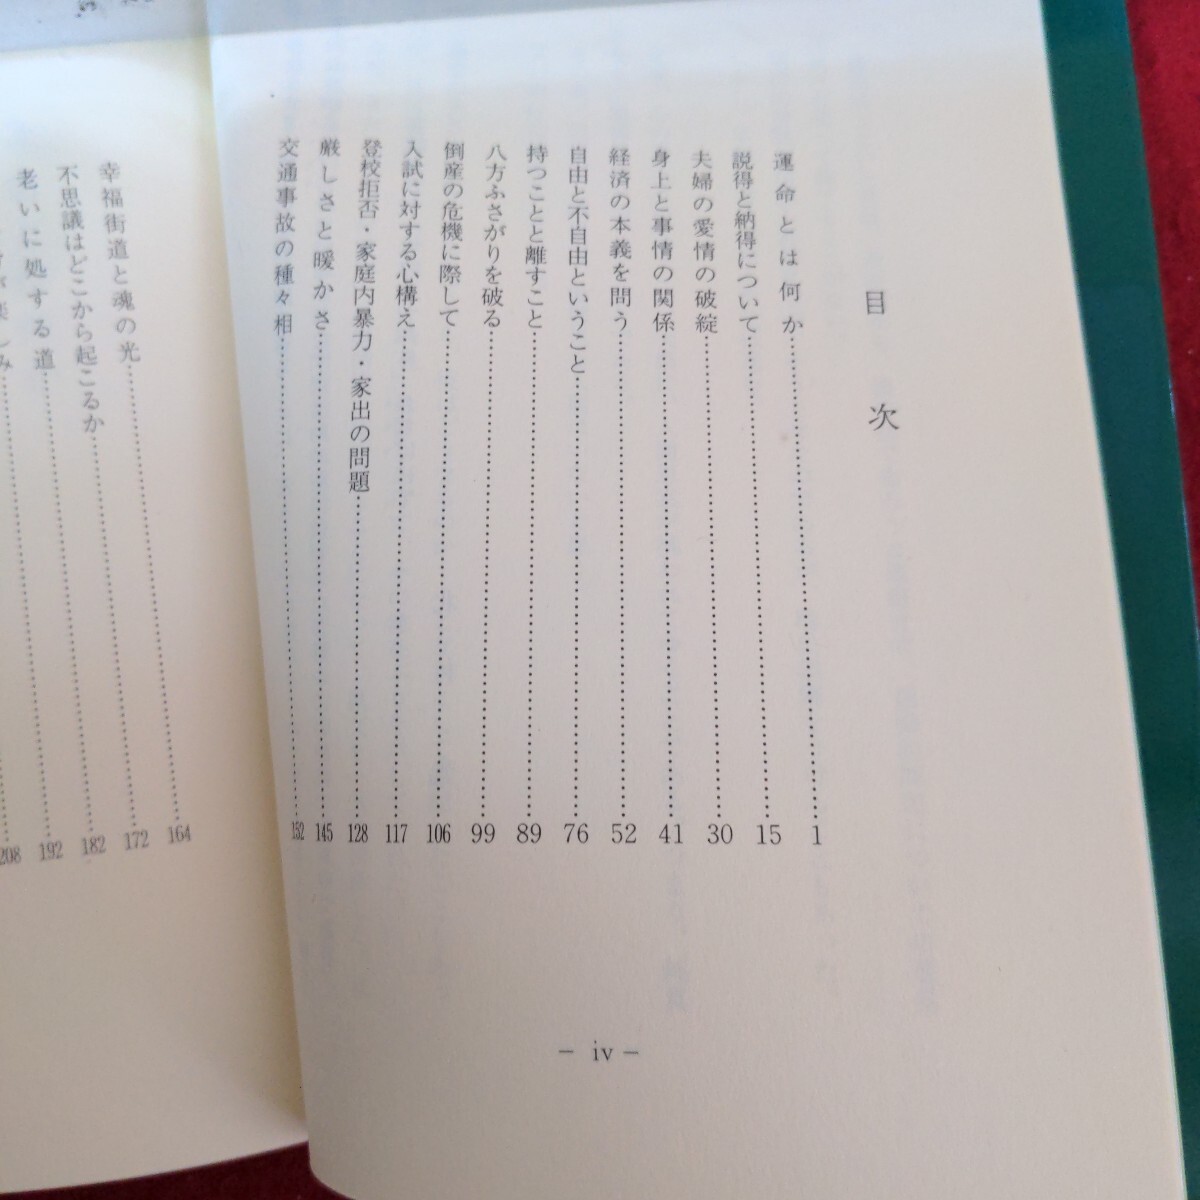 目次
運命とは何か……1
説得と納得について……15
夫婦の愛情の破綻……30
身上と事情の関係……41
経済の本義を問う……52
自由と不自由ということ……76
持つことと離すこと……89
八方ふさがりを破る……99
倒産の危機に際して……106
入試に対する心構え……117
登校拒否・家庭内暴力・家出の問題……128
厳しさと暖かさ……145
交通事故の種々相……152
— iv —
幸福街道と魂の光……164
不思議はどこから起こるか……172
老いに処する道……182
192
208